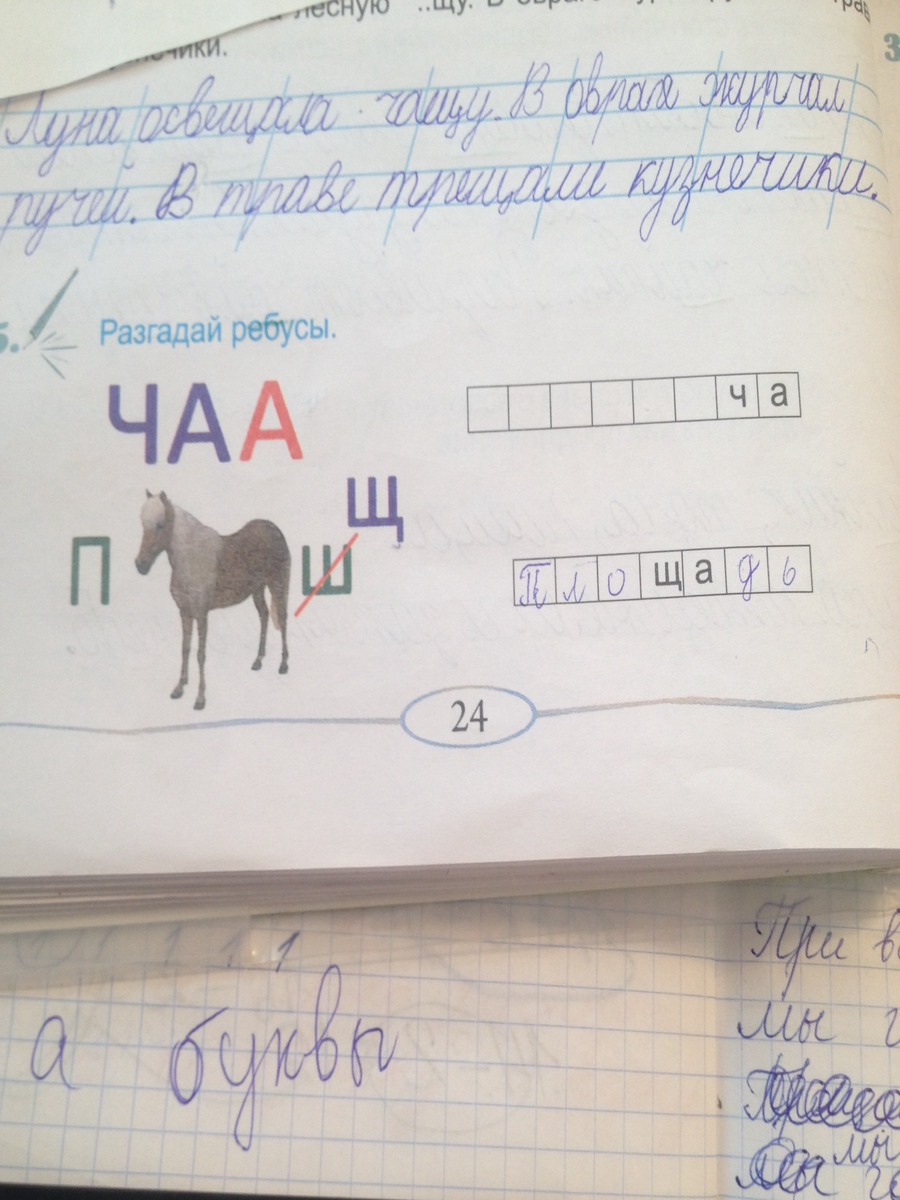 лесную ..щу. В
чики.
Луна освещала чащу. В овраге журчал
ручей. В траве трещали кузнечики.
3
5. Разгадай ребусы.
ЧАА
ча
П Ш Щ
Площадь
24
1 1 1 1
а буквы
При в
мы г
мы